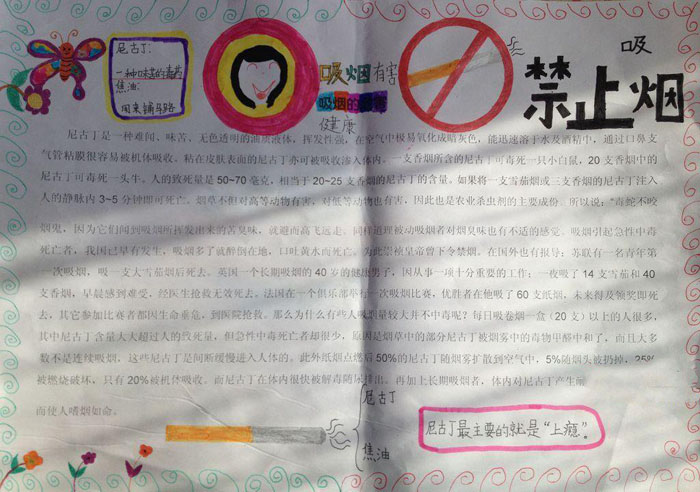 尼古丁：
一种味苦的毒药
焦油：
用来铺马路
吸烟有害
吸烟的
健康
吸
禁止烟
尼古丁是一种难闻、味苦、无色透明的油质液体，挥发性强，在空气中极易氧化成暗灰色，能迅速溶于水及酒精中，通过口鼻支
气管粘膜很容易被机体吸收。粘在皮肤表面的尼古丁亦可被吸收渗入体内。一支香烟所含的尼古丁可毒死一只小白鼠，20支香烟中的
尼古丁可毒死一头牛。人的致死量是50~70毫克，相当于20~25支香烟的尼古丁的含量。如果将一支雪茄烟或三支香烟的尼古丁注入
人的静脉内3~5分钟即可死亡。烟草不但对高等动物有害，对低等动物也有害，因此也是农业杀虫剂的主要成份。所以说："毒蛇不咬
烟鬼，因为它们闻到吸烟所挥发出来的苦臭味，就避而高飞远走。同样道理被动吸烟者对烟臭味也有不适的感觉。吸烟引起急性中毒
死亡者，我国已早有发生，吸烟多了就醉倒在地，口吐黄水而死亡。为此崇祯皇帝曾下令禁烟。在国外也有报导：苏联有一名青年第
一次吸烟，吸一支大雪茄烟后死去。英国一个长期吸烟的40岁的健康男子，因从事一项十分重要的工作，一夜吸了14支雪茄和40
支香烟，早晨感到难受，经医生抢救无效死去。法国在一个俱乐部举行一次吸烟比赛，优胜者在他吸了60支纸烟，未来得及领奖即死
去，其它参加比赛者都因生命垂危，到医院抢救。那么为什么有些人吸烟量较大并不中毒呢？每日吸卷烟一盒（20支）以上的人很多，
其中尼古丁含量大大超过人的致死量，但急性中毒死亡者却很少，原因是烟草中的部分尼古丁被烟雾中的毒物甲醛中和了，而且大多
数不是连续吸烟，这些尼古丁是间断缓慢进入人体的。此外纸烟点燃后50%的尼古丁随烟雾扩散到空气中，5%随烟头被扔掉，25%
被燃烧破坏，只有20%被机体吸收。而尼古丁在体内很快被解毒随尿排出。再加上长期吸烟者，体内对尼古丁产生耐
而使人嗜烟如命。
尼古丁
焦油
尼古丁最主要的就是"上瘾"。